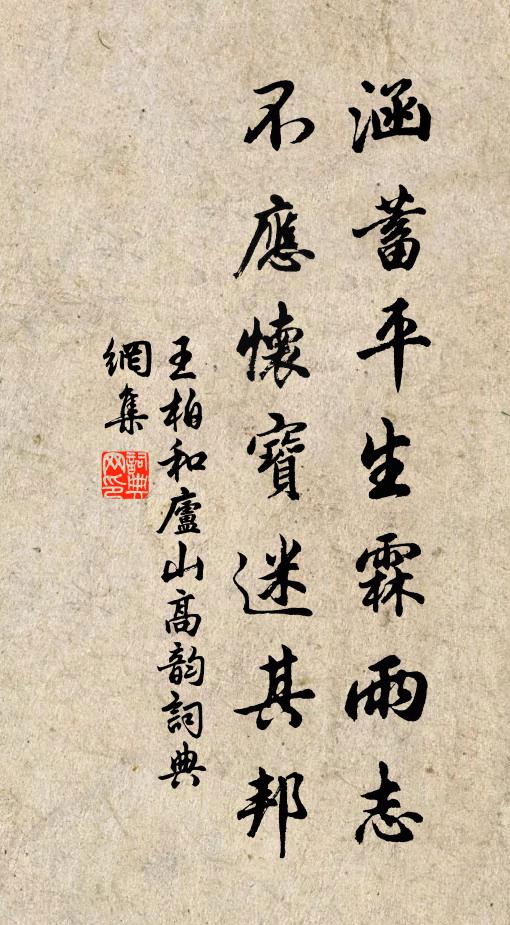 涵蓄平生霖雨志
不應懷寶迷其邦
王柏和廬山高韵詞典
網集
詞典
网印